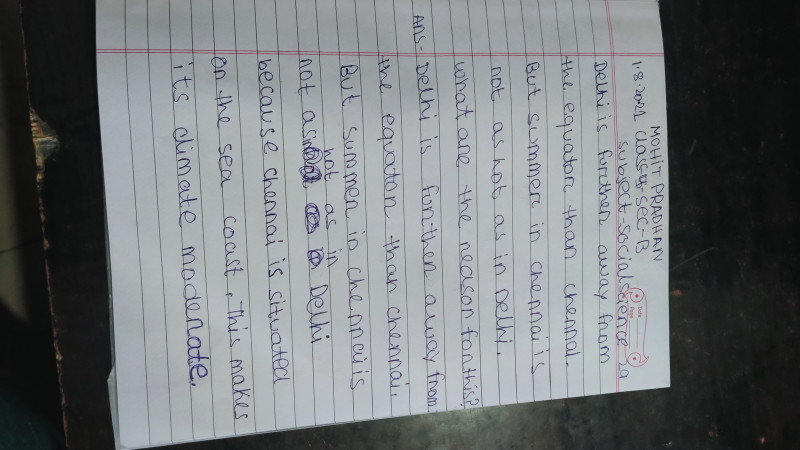 MOHIT PRADHAN
1.8.2021 class-5 SEC-B
subject-social science 29
Delhi is further away from
the equator than chennai.
But summer in chennai is
not as hot as in Delhi.
what are the reason for this?
Ans- Delhi is forther away from
the equator than chennai.
But summer in chennai is
not as hot as in Delhi
because chennai is situated
on the sea coast, This makes
its climate moderate.